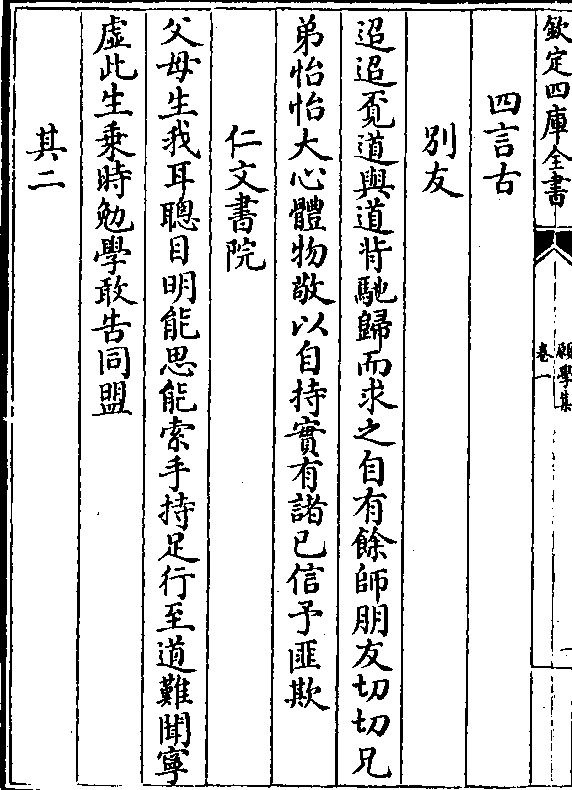 欽定四庫全書
願學集
卷一
一
四言古
別友
迢迢覔道與道背馳歸而求之自有餘師朋友切切兄
弟怡怡大心體物敬以自持實有諸已信予匪欺
仁文書院
父母生我耳聰目明能思能索手持足行至道難聞寧
虛此生乗時勉學敢告同盟
其二